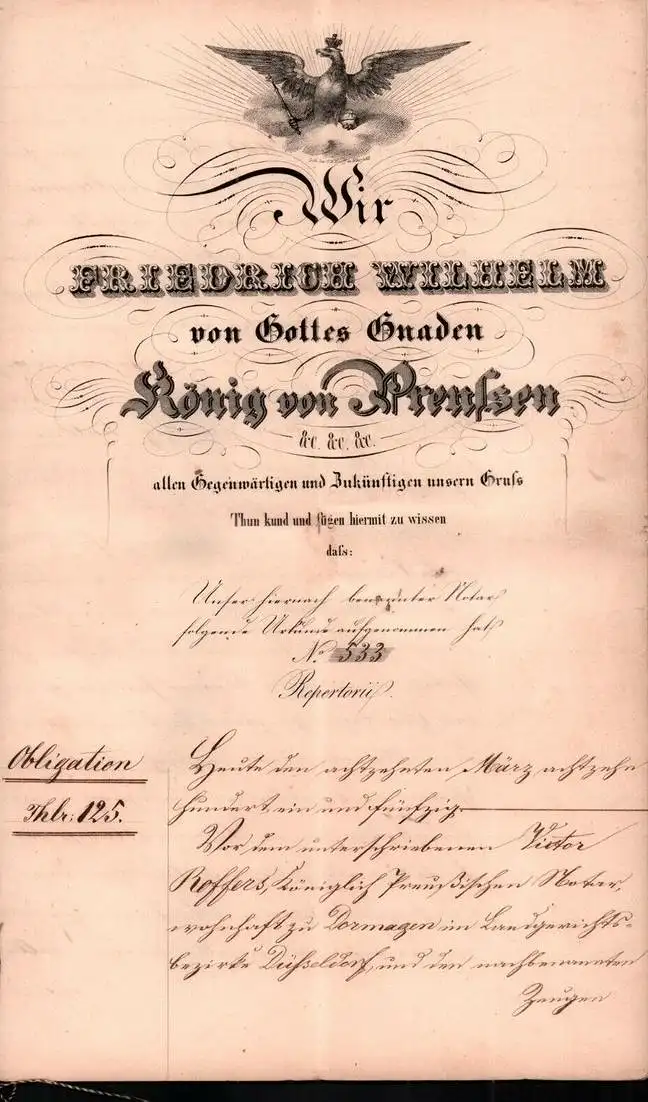 Wir
FRIEDRICH WILHELM
von Gottes Gnaden
König von Preuſsen
&c. &c. &c.
allen Gegenwärtigen und Zukünftigen unsern Gruſs
Thun kund und fügen hiermit zu wissen
daſs:
Unser hiernach benannter Notar
folgende Urkunde aufgenommen hat
No. 533
Repertorii.
Obligation
Thlr: 125.
Heute den achtzehnten März achtzehn
hundert ein und fünfzig
Vor dem unterschriebenen Victor
Roffers, Königlich Preußischen Notar,
wohnhaft zu Dormagen im Landgerichts-
bezirke Düsseldorf, und den nachbenannten
Zeugen